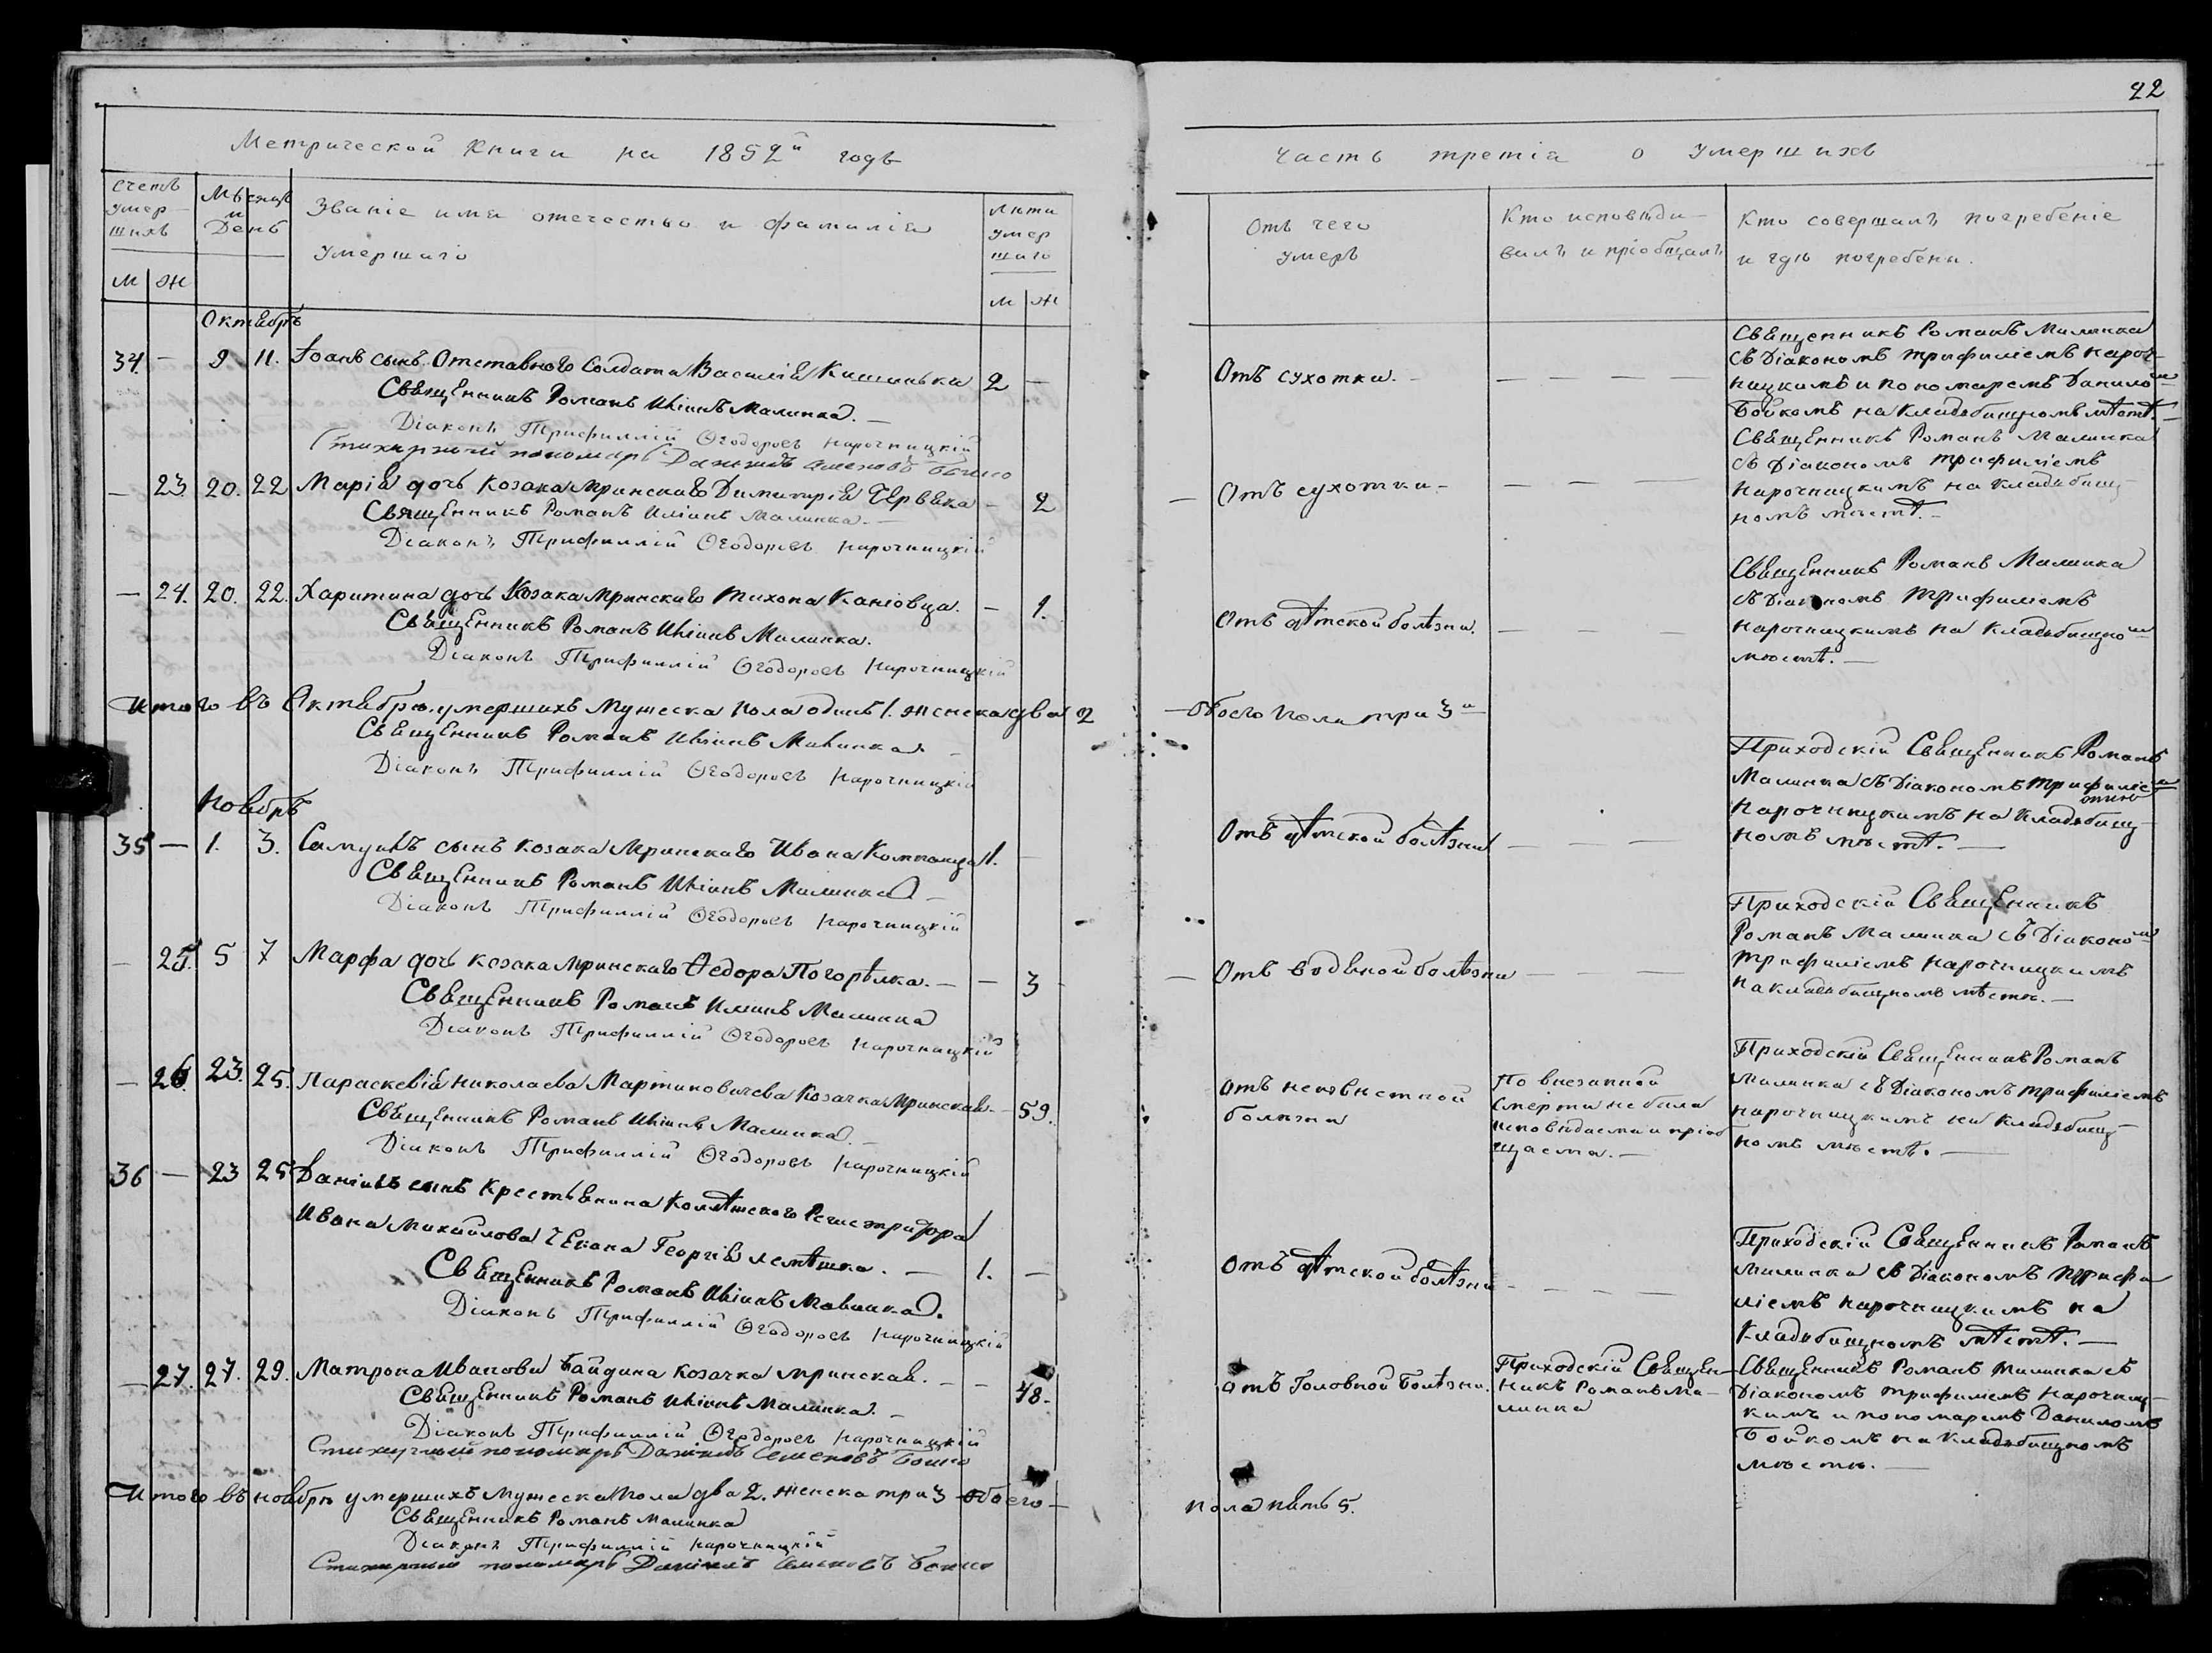 Метрической Книги на 1852й годъ
Счетъ умер-
шихъ
М Ж
Мѣсяцъ
и
День
Званіе имя отечество и фамилія
умершаго
Лѣта
умер
шаго
М Ж
Октябрь
34. — 9 11. Іоанъ сынъ Отставного Солдата Василія 2 —
Священникъ Романъ Иліинъ Малинка. —
Діаконъ Трифиллій Ѳеодоровъ Нарочницкій
Стихарный пономарь Даніилъ Семеновъ Бойко
— 23 20. 22 Марія дочь Козака Мринскаго Димитрія Червяка — 2
Священникъ Романъ Иліинъ Малинка. —
Діаконъ Трифиллій Ѳеодоровъ Нарочницкій
— 24. 20. 22. Харитина дочь Козака Мринскаго Тихона Каніовца. — 1.
Священникъ Романъ Иліинъ Малинка.
Діаконъ Трифиллій Ѳеодоровъ Нарочницкій
Итого въ Октябрѣ умершихъ Мужеска пола одинъ 1. женска два 2
Священникъ Романъ Иліинъ Малинка —
Діаконъ Трифиллій Ѳеодоровъ Нарочницкій
Ноябрь
35 — 1. 3. Самуилъ сынъ козака Мринскаго Ивана Компанца 1. —
Священникъ Романъ Иліинъ Малинка —
Діаконъ Трифиллій Ѳеодоровъ Нарочницкій
— 25. 5 7 Марфа дочь козака Мринскаго Ѳедора Погорѣлка. — — 3
Священникъ Романъ Илиинъ Малинка
Діаконъ Трифиллій Ѳеодоровъ Нарочницкій
— 26. 23. 25. Параскевія Николаева Мартиновичева Козачка Мринская. — 59.
Священникъ Романъ Иліинъ Малинка. —
Діаконъ Трифиллій Ѳеодоровъ Нарочницкій
36 — 23 25 Даніилъ сынъ Крестьянина Колѣжского Регистратора
Ивана Михайлова Чекана Георгія Лемѣшка. — 1. —
Священникъ Романъ Иліинъ Малинка.
Діаконъ Трифиллій Ѳеодоровъ Нарочницкій
— 27. 27. 29. Матрона Иванова Байдина козачка мринская. — — 48.
Священникъ Романъ Иліинъ Малинка. —
Діаконъ Трифиллій Ѳеодоровъ Нарочницкій
Стихарный пономарь Даніилъ Семеновъ Бойко
Итого въ ноябрѣ умершихъ Мужеска пола два 2. женска три 3 обоего —
Священникъ Романъ Малинка
Діаконъ Трифиллій Нарочницкій
Стихарный пономарь Даніилъ Семеновъ Бойко
22
Часть третія о умершихъ
Отъ чего
умеръ
Кто исповѣди-
валъ и пріобщалъ
Кто совершалъ погребеніе
и гдѣ погребены.
Священникъ Романъ Малинка
Отъ сухотки. — — — — — съ Діакономъ Трифиліемъ Нароч-
ницкимъ и пономаремъ Данилом
Бойкомъ на Кладбищномъ мѣстѣ. —
Священникъ Романъ Малинка
съ Діакономъ Трифиліемъ
— Отъ сухотки. — — — — — Нарочницкимъ на кладбищ-
номъ мѣстѣ. —
Священникъ Романъ Малинка
съ Діакономъ Трифиліемъ
Отъ дѣтской болѣзни. — — — Нарочницкимъ на Кладбищном
мѣстѣ. —
— Обоего пола три 3и
Приходскій Священникъ Романъ
Малинка съ Діакономъ Трифиліем
Отъ дѣтской болѣзни — — — Нарочницкимъ на Кладбищ-
номъ мѣстѣ. —
Приходскій Священникъ
Романъ Малинка съ Діаконом
— Отъ водяной болѣзни — — Трифиліемъ Нарочницкимъ
на Кладбищномъ мѣстѣ. —
Отъ неизвѣстной
болѣзни
По внезапной
Смерти не была
исповѣдаема и пріоб
щаема. —
Приходскій Священникъ Романъ
Малинка съ Діакономъ Трифиліемъ
Нарочницкимъ на Кладбищ-
номъ мѣстѣ. —
Отъ дѣтской болѣзни — — — —
Приходскій Священникъ Романъ
Малинка съ Діакономъ Трифи
ліемъ Нарочницкимъ на
Кладбищномъ мѣстѣ. —
Отъ Головной Болѣзни.
Приходскій Священ-
никъ Романъ Ма-
линка
Священникъ Романъ Малинка съ
Діакономъ Трифиліемъ Нарочниц-
кимъ и пономаремъ Даниломъ
Бойкомъ на Кладбищномъ
мѣстѣ. —
пола пять 5.